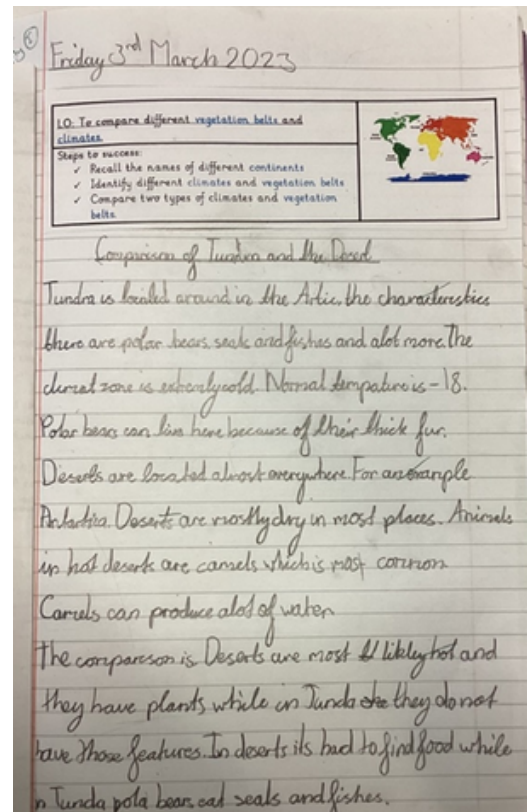 Friday 3rd March 2023
LO: To compare different vegetation belts and
climates.
Steps to success:
✓ Recall the names of different continents
✓ Identify different climates and vegetation belts
✓ Compare two types of climates and vegetation
belts.
Comparison of Tundra and the Desert
Tundra is located around in the Artic, the characteristics
there are polar bears, seals and fishes and alot more. The
climat zone is extremly cold. Normal tempature is -18.
Polar bears can live here because of their thick fur.
Deserts are located almost everywhere. For an example
Antartica. Deserts are mostly dry in most places. Animals
in hot deserts are camels which is most common
Camels can produce alot of water.
The compareson is Deserts are most likley hot and
they have plants while in Tunda they do not
have those features. In deserts its had to find food while
n Tunda pola bears eat seals and fishes.